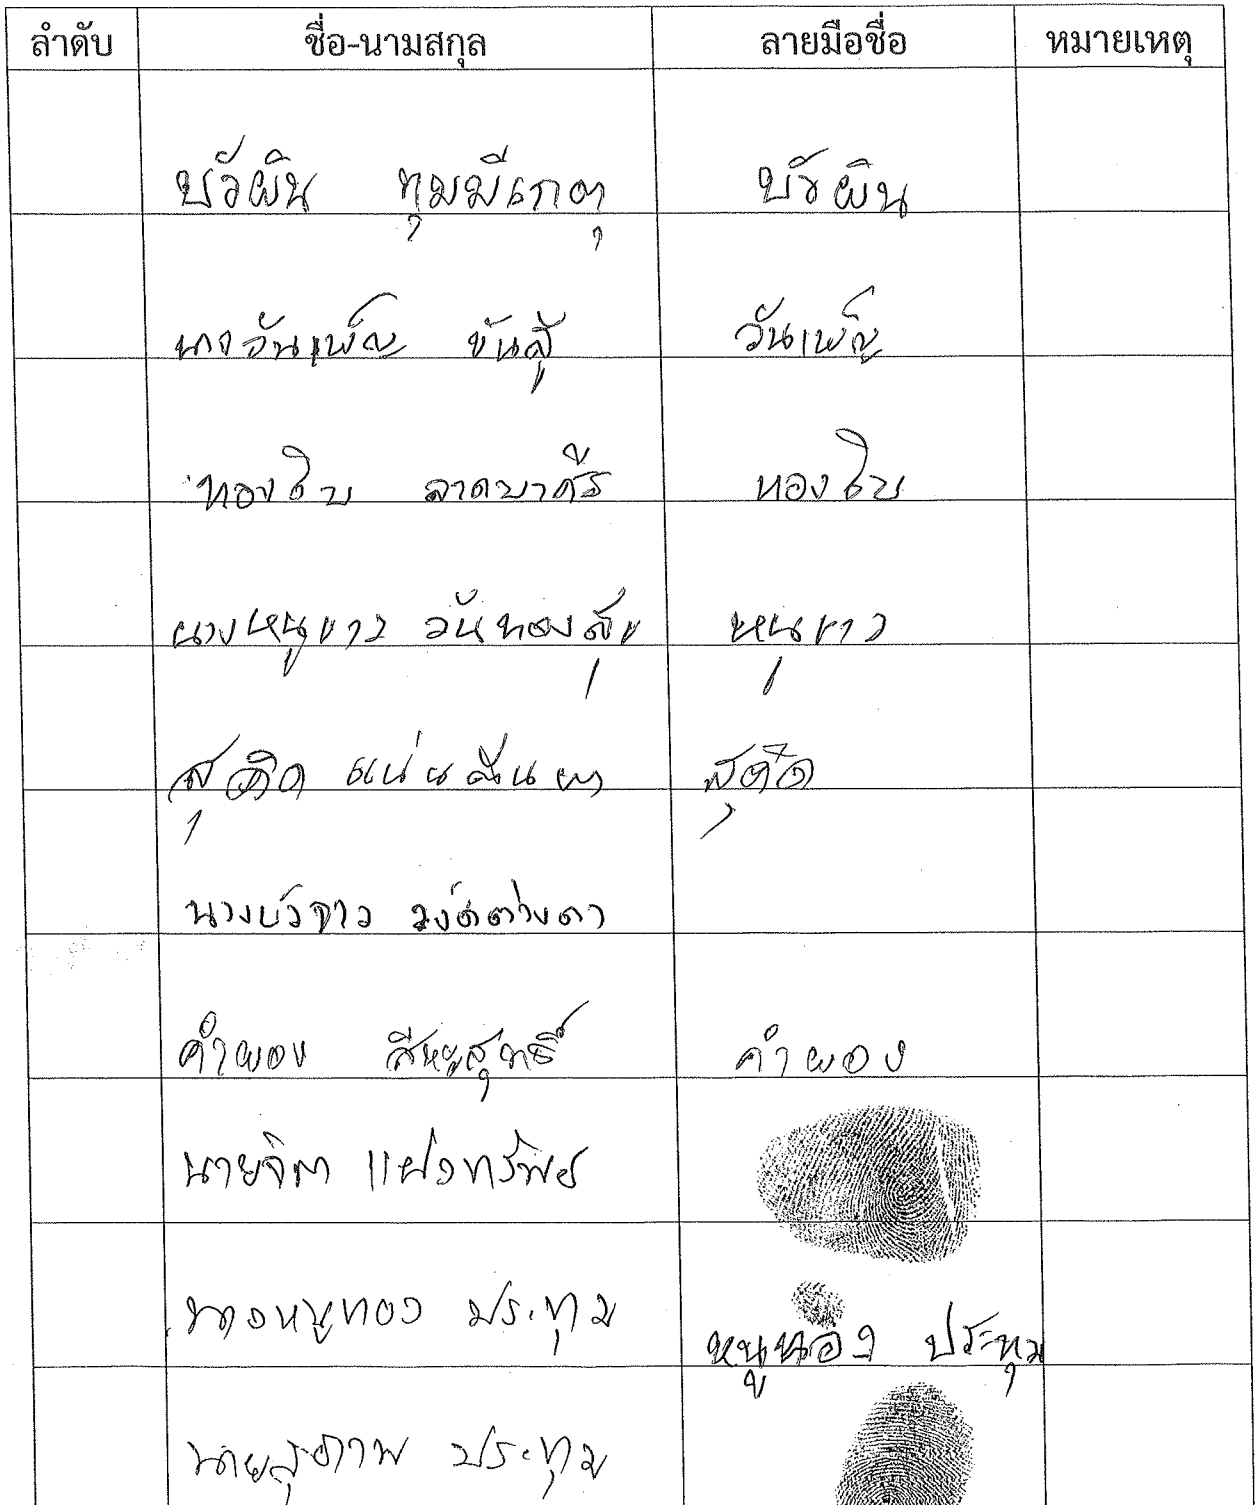 ลำดับ ชื่อ-นามสกุล ลายมือชื่อ หมายเหตุ
บัวผิน ทุมมีเกตุ บัวผิน
นางวันเพ็ญ ขันสู้ วันเพ็ญ
ทองใบ ลาดบาศรี ทองใบ
นางหนูขาว วันทองสุข หนุขาว
สุคิด แน่นอุ่นผา สุคิด
นางบัวจาว
คำผอง สีหนูสุทธิ์ คำผอง
นายจิตา แฝงทรัพย์
นางหนูทอง ประทุม หนูทอง ประทุม
นายสุภาพ ประทุม